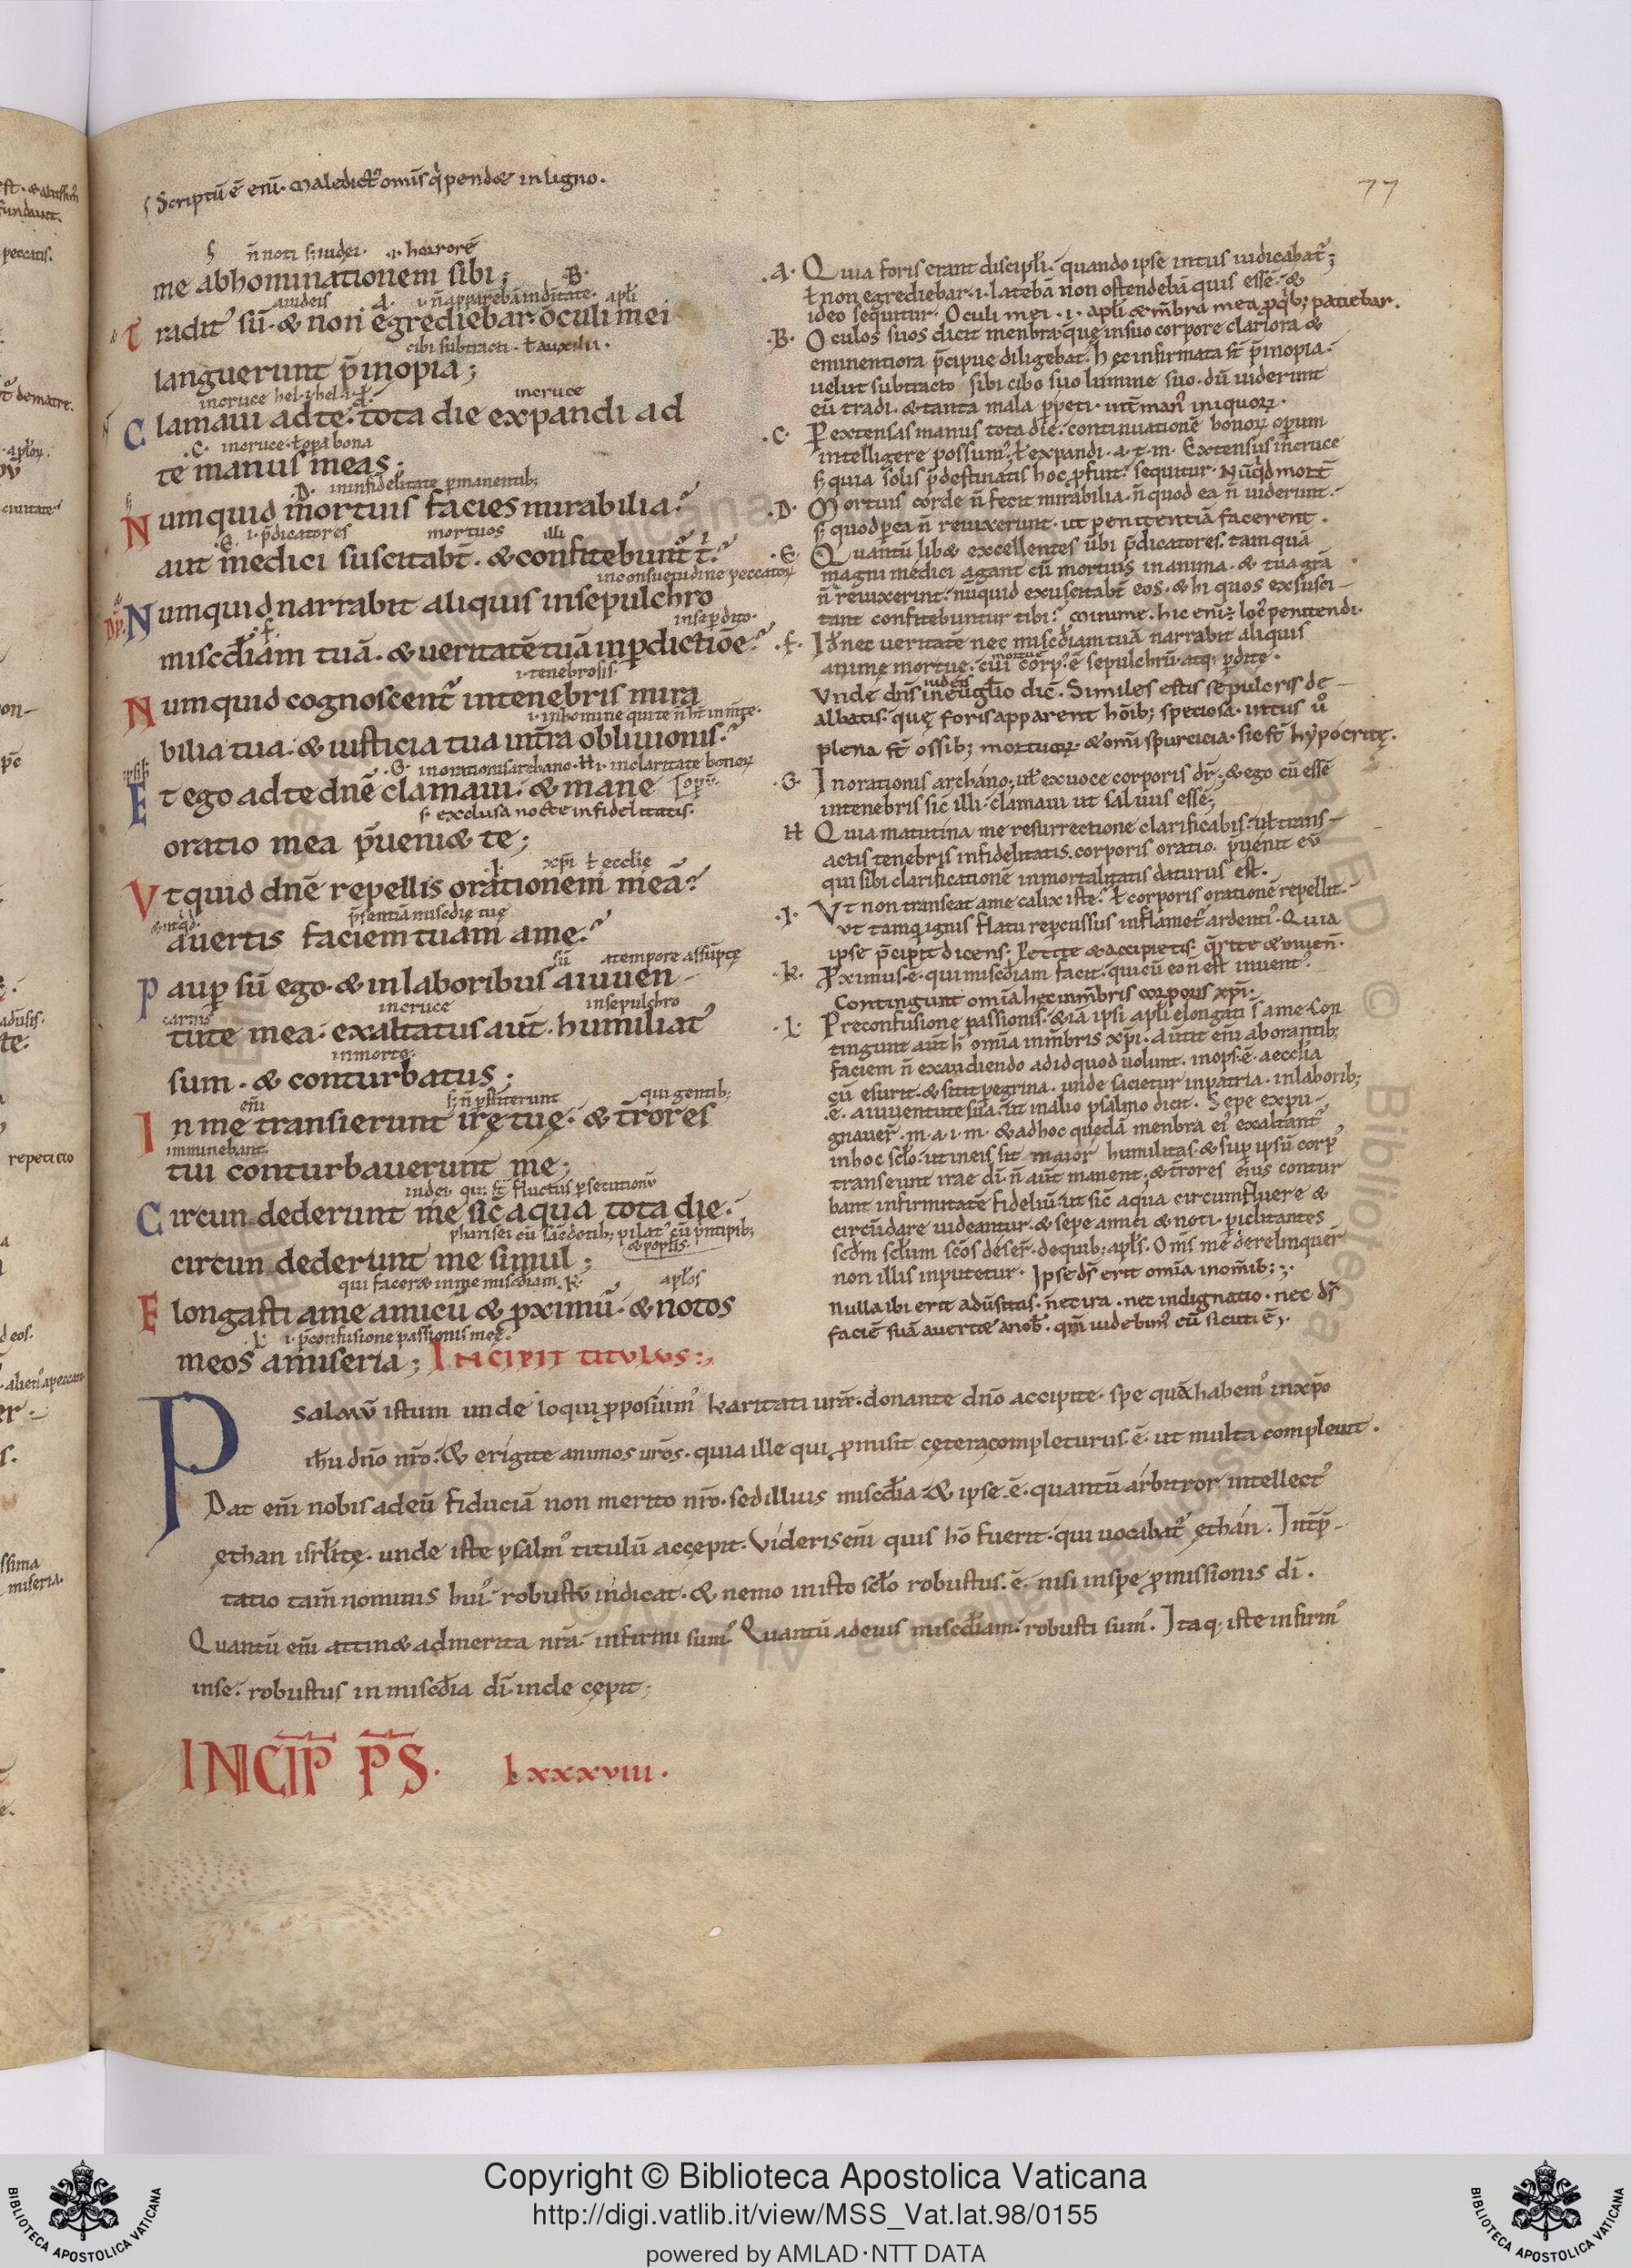 77
Scriptū ē enī. Maledict᷒ om̄is q̇ pend& in ligno.
n̄ noti s; iudei. .i. horrorē
me abhominationem sibi; .B.
a iudeis A. .i. n̄ apparebā in d̄nitate. apl̄i
Tradit᷒ sū. & non egrediebar. oculi mei
cibi subtracti. ł auxilii.
languerunt p̄ inopia;
in cruce
Clamaui ad te. tota die expandi ad
.C. in cruce. ł opera bona
te manus meas;
.D. in infidelitate p̄manentib;
Numquid mortuis facies mirabilia?
.E. .i. p̄dicatores mortuos illi
aut medici suscitabt̄. & confitebunt̄ t̄?
in consuetudine peccatoꝝ
Numquid narrabit aliquis in sepulchro
.F. in se p̄dito.
misc̄diam tuā. & ueritatē tuā in p̄dictiōe?
.i. tenebrosis.
Numquid cognoscent̄ in tenebris mira
bilia tua. & iusticia tua in t̄ra obliuionis?
.G. in orationis archano. H .i. in claritate bonoꝝ
Et ego ad te dn̄e clamaui. & mane
s. exclusa nocte infidelitatis.
oratio mea p̄ueni& te;
.I. xp̄i ł ecclie
Vt quid dn̄e repellis orationem meā?
p̄sentiā misc̄die tue
auertis faciem tuam a me?
sū a tempore assūpte
Paup̄ sū ego. & in laboribus a iuuen-
carnis in cruce in sepulchro
tute mea. exaltatus aut̄. humiliat᷒
in morte.
sum. & conturbatus;
enī s; n̄ p̄stiterunt qui gentib;
In me transierunt irę tuę. & t̄rores
imminebant
tui conturbauerunt me;
iudei qui st̄ fluctus p̄secutionū
Circun dederunt me sic aqua tota die.
pharisei cū sac̄dotib; pilat᷒ cū p̄ncipib;
& pop̄lis.
circun dederunt me simul;
qui facer& in me misc̄diam. K. apl̄os
Elongasti a me amicū & p̄ximū. & notos
.L. .i. p̄ confusione passionis meę.
meos a miseria; Incipit titulus:,
.A. Quia foris erant discipl̄i. quando ipse intus iudicabat᷒;
ł non egrediebar. .i. latebā non ostendebā quis essē. &
ideo sequitur. Oculi mei. .i. apl̄i & mēbra mea, p̄ quib; patiebar.
.B. Oculos suos dicit menbra. quę in suo corpore clariora &
eminentiora p̄cipue diligebat. Hęc infirmata st̄ p̄ inopia.
uelut subtracto sibi cibo suo lumine suo. dū uiderunt
eū tradi. & tanta mala p̄peti. int̄ man᷒ iniquoꝝ.
.C. Per extensas manus tota die. continuationē bonoꝝ operum
intelligere possum᷒. ł expandi. a. t. m. Extensus in cruce
s; quia solis p̄destinatis hoc p̄fuit. sequitur. Nūq̇d mort̄
.D. Mortuis corde n̄ fecit mirabilia. n̄ quod ea n̄ uiderunt.
s; quod p̄ ea n̄ reuixerunt. ut penitentiā facerent.
.E. Quantū lib& excellentes ūbi p̄dicatores. tamquā
magni medici agant cū mortuis in anima. & tua grā
n̄ reuixerint. nūquid exuscitabt̄ eos. & hi quos exsusci-
tant confitebuntur tibi? Minime. hic enī: loc᷒ penitendi.
.F. Id̄ nec ueritatē nec misc̄diam tuā narrabit aliquis
animę mortuę. cui mortue corp᷒ ē sepulchrū. atq; p̄ditę.
Vnde dn̄s iudeis in euuḡlio dic̄. Similes estis sepulcris de-
albatis. quę foris apparent hōib; speciosa. intus ū
plena st̄ ossib; mortuoꝝ. & om̄i spurcicia. sic st̄ hypocritę.
.G. In orationis archano; uł ex uoce corporis dr̄; & ego cū essē
in tenebris sic illi. clamaui ut saluus essē;
H Quia matutina me resurrectione clarificabis. uł trans-
actis tenebris infidelitatis. corporis oratio. p̄uenit eū
qui sibi clarificationē inmortalitatis daturus est.
.I. Vt non transeat a me calix iste? ł corporis orationē repellit.
ut tamquā ignis flatu repercussus inflamet̄ ardenti᷒. Quia
ipse p̄cipit dicens; Petite & accipietis. q̄rite & inuen̄.
.K. Proximus. ē. qui misc̄diam facit. qui cū eo n̄ est inuent᷒.
Contingunt om̄ia hęc in mēbris corporis xp̄i.
.L. Pre confusione passionis. & iā ipsi apl̄i elongati s̄ a me. Con
tingunt aut̄ h̄ om̄ia in mēbris xp̄i. Auertit enī ab orantib;
faciem n̄ exaudiendo ad id quod uolunt. inops. ē. aecclia
cū esurit. & sitit peregrina. unde sacietur in patria. in laborib;
.ē. a iuuentute sua. ut in alio psalmo dicit. Sepe expu-
gnauer̄. m. a. i. m. & ad hoc quedā menbra ei᷒ exaltant᷒
in hoc sc̄lo. ut in eis sit maior humilitas. & sup̄ ipsū corp᷒
transeunt irae dī. n̄ aut̄ manent. & t̄rores eius contur
bant infirmitatē fideliū. ut sic̄ aqua circumfluere &
circūdare uideantur. & sepe amici & noti. p̄iclitantes
scdm̄ sc̄lum scōs deser̄. de quib; apl̄s. Om̄s me derelinquer̄
non illis inputetur. Ipse ds̄ erit om̄ia in om̄ib;
nulla ibi erit adūsitas. nec ira. nec indignatio. nec ds̄
faciē suā auert& a nob̄. qm̄ uidebim᷒ eū sicuti ē.
Psalmū istum unde loqui p̄posuim᷒ karitati ur̄e. donante dn̄o accipite. spe quā habem᷒ in xp̄o
ih̄u dn̄o nr̄o. & erigite animos ur̄os. quia ille qui p̄misit cętera completurus. ē. ut multa compleuit.
Dat enī nobis ad eū fiduciā non merito nr̄o. sed illius misc̄dia. & ipse. ē. quantū arbitror intellect᷒
ęthan isrl̄itę. unde iste psalm᷒ titulū accepit. Videris enī quis hō fuerit. qui uocabat᷒ ęthan. Int̄p̄-
tatio tam̄ nominis hui᷒. robustū indicat. & nemo in isto sc̄lo robustus. ē. nisi in spe p̄missionis dī.
Quantū enī attin& ad merita nr̄a. infirmi sum᷒. Quantū ad eius misc̄diam. robusti sum᷒. Itaq; iste infirm᷒
in se. robustus in misc̄dia dī. inde cępit;
INCIP̄ P̄S. lxxxviii.
Copyright © Biblioteca Apostolica Vaticana
http://digi.vatlib.it/view/MSS_Vat.lat.98/0155
powered by AMLAD·NTT DATA
BIBLIOTECA APOSTOLICA VATICANA
BIBLIOTECA APOSTOLICA VATICANA